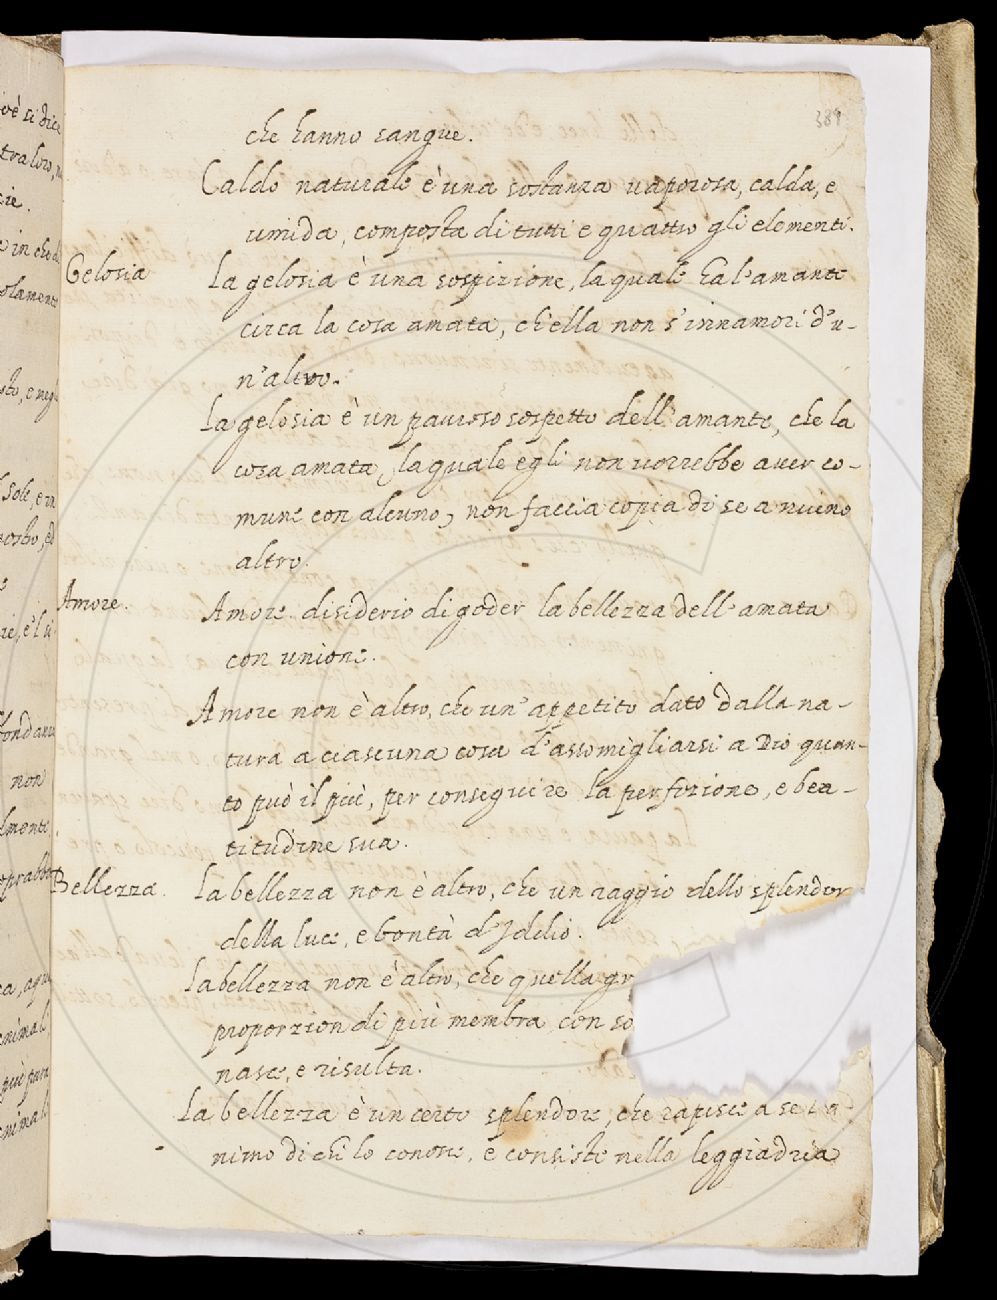 389
che hanno sangue.
Caldo naturale è una sostanza vaporosa, calda, e
umida, composta di tutti e quattro gli elementi.
Gelosia La gelosia è una sospizione, la quale ha l'amante
circa la cosa amata, ch'ella non s'innamori d'u-
n'altro.
La gelosia è un pauroso sospetto dell'amante, che la
cosa amata, la quale egli non vorrebbe aver co-
mune con alcuno, non faccia copia di se a niuno
altro.
Amore. Amore disiderio di goder la bellezza dell'amata
con unione.
Amore non è altro, che un'appetito dato dalla na-
tura a ciascuna cosa d'assomigliarsi a Dio quan-
to può il più, per conseguire la perfezione, e bea-
titudine sua.
Bellezza. La bellezza non è altro, che un raggio dello splendor
della luce, e bontà d'Iddio.
La bellezza non è altro, che quella gr
proporzion di più membra con so
nasce, e risulta.
La bellezza è un certo splendore, che rapisce a se l'a-
nimo di chi lo conosce, e consiste nella leggiadria